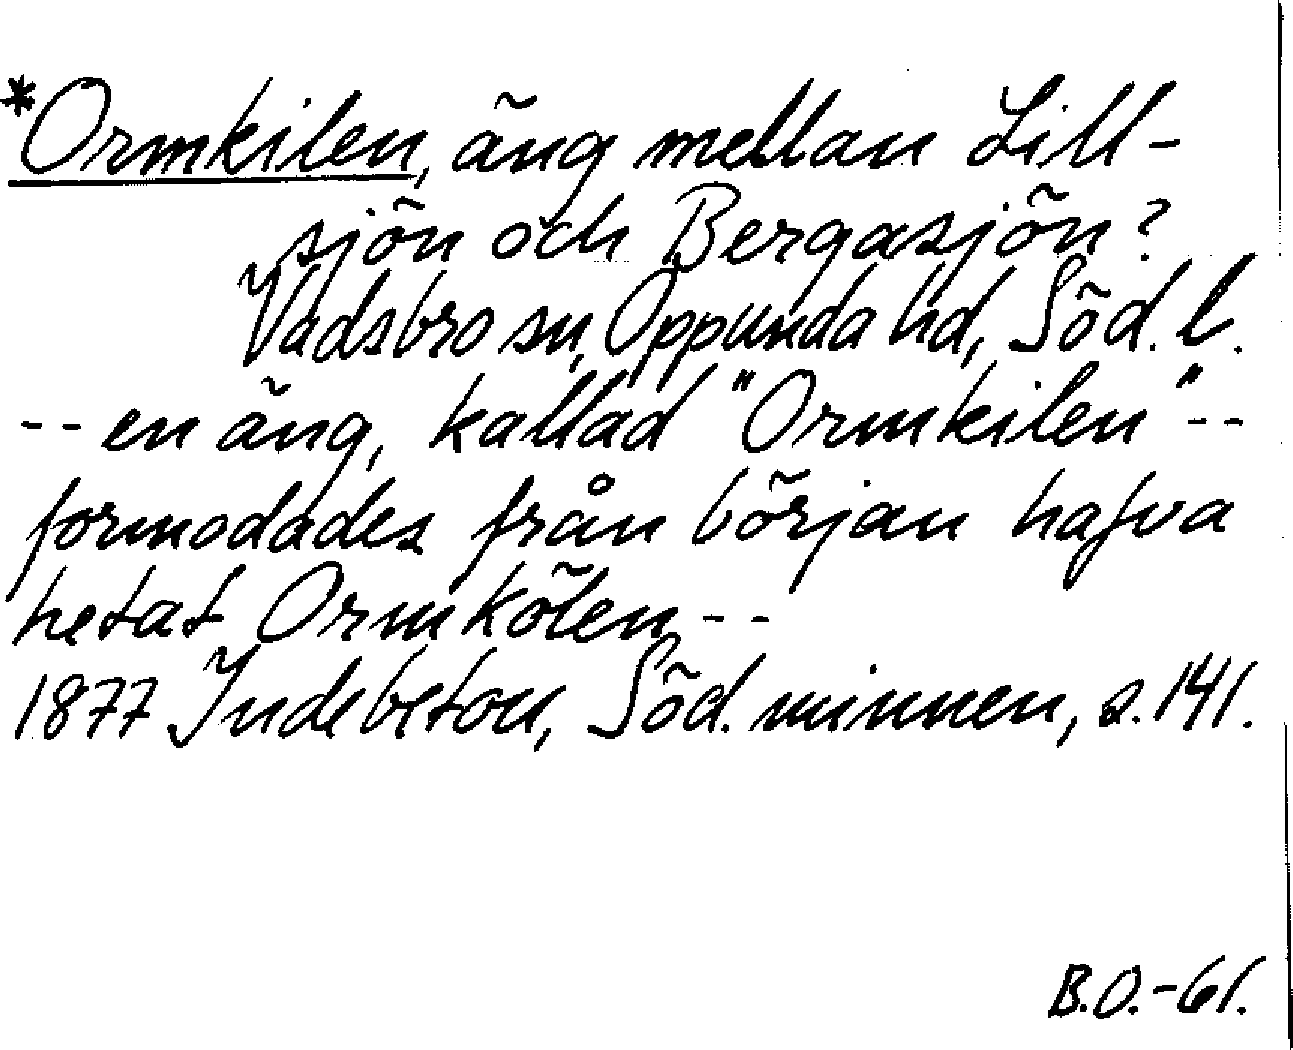 *Ormkilen, äng mellan Lill-
sjön och Bergasjön?
Vadsbro sn, Oppunda hd, Söd. l.
-- en äng, kallad "Ormkilen" --
formodades från början hafva
hetat Ormkölen --
1877 Indebetou, Söd. minnen, s. 141.
B.O.-61.